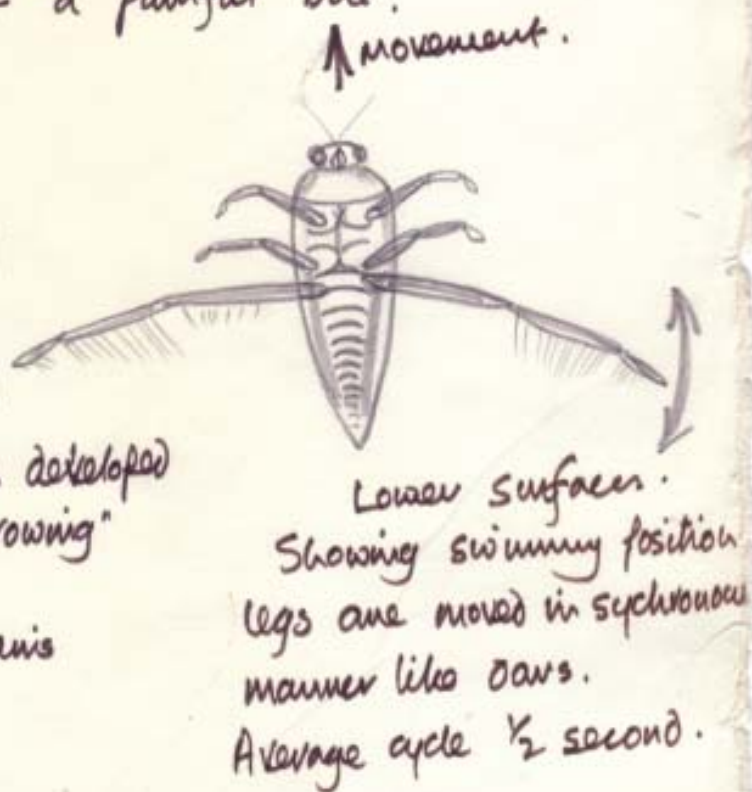 a painful
movement.
developed
rowing"
Lower surfaces.
Showing swimmy position
legs are moved in sychronous
manner like oars.
Average cycle ½ second.